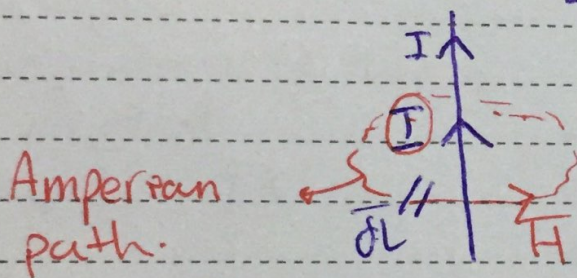 I
I
Amperean
path.
dL // H